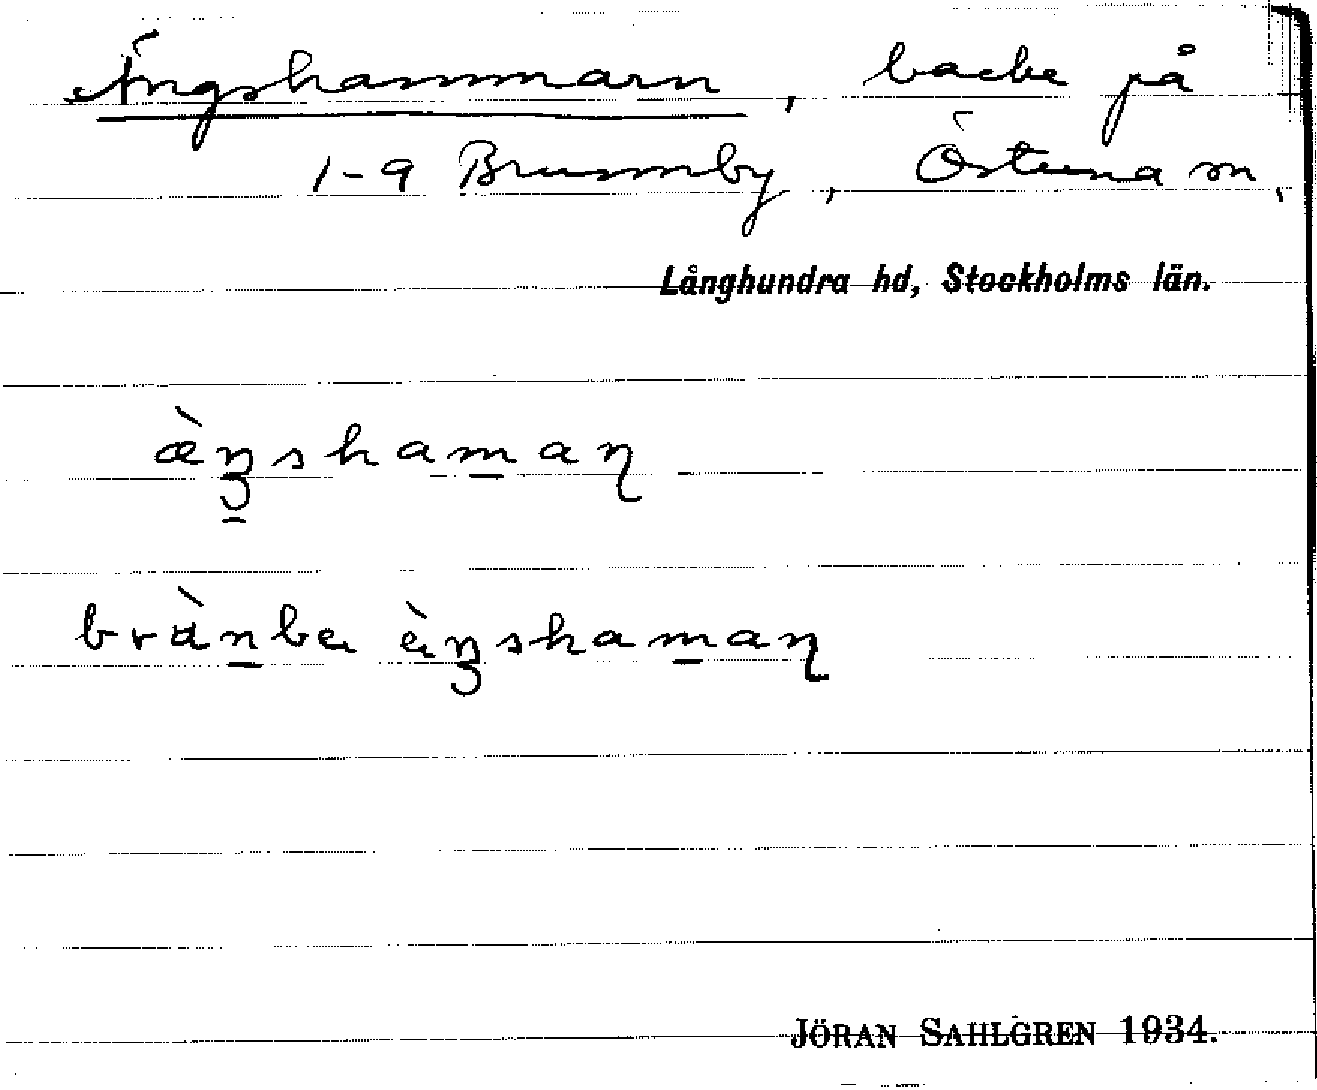 Ängshammarn, backe på
1-9 Brunnby, Östuna sn,
Långhundra hd, Stockholms län.
æ̀ŋshaman̨
brànbe èŋshaman̨
JÖRAN SAHLGREN 1934.